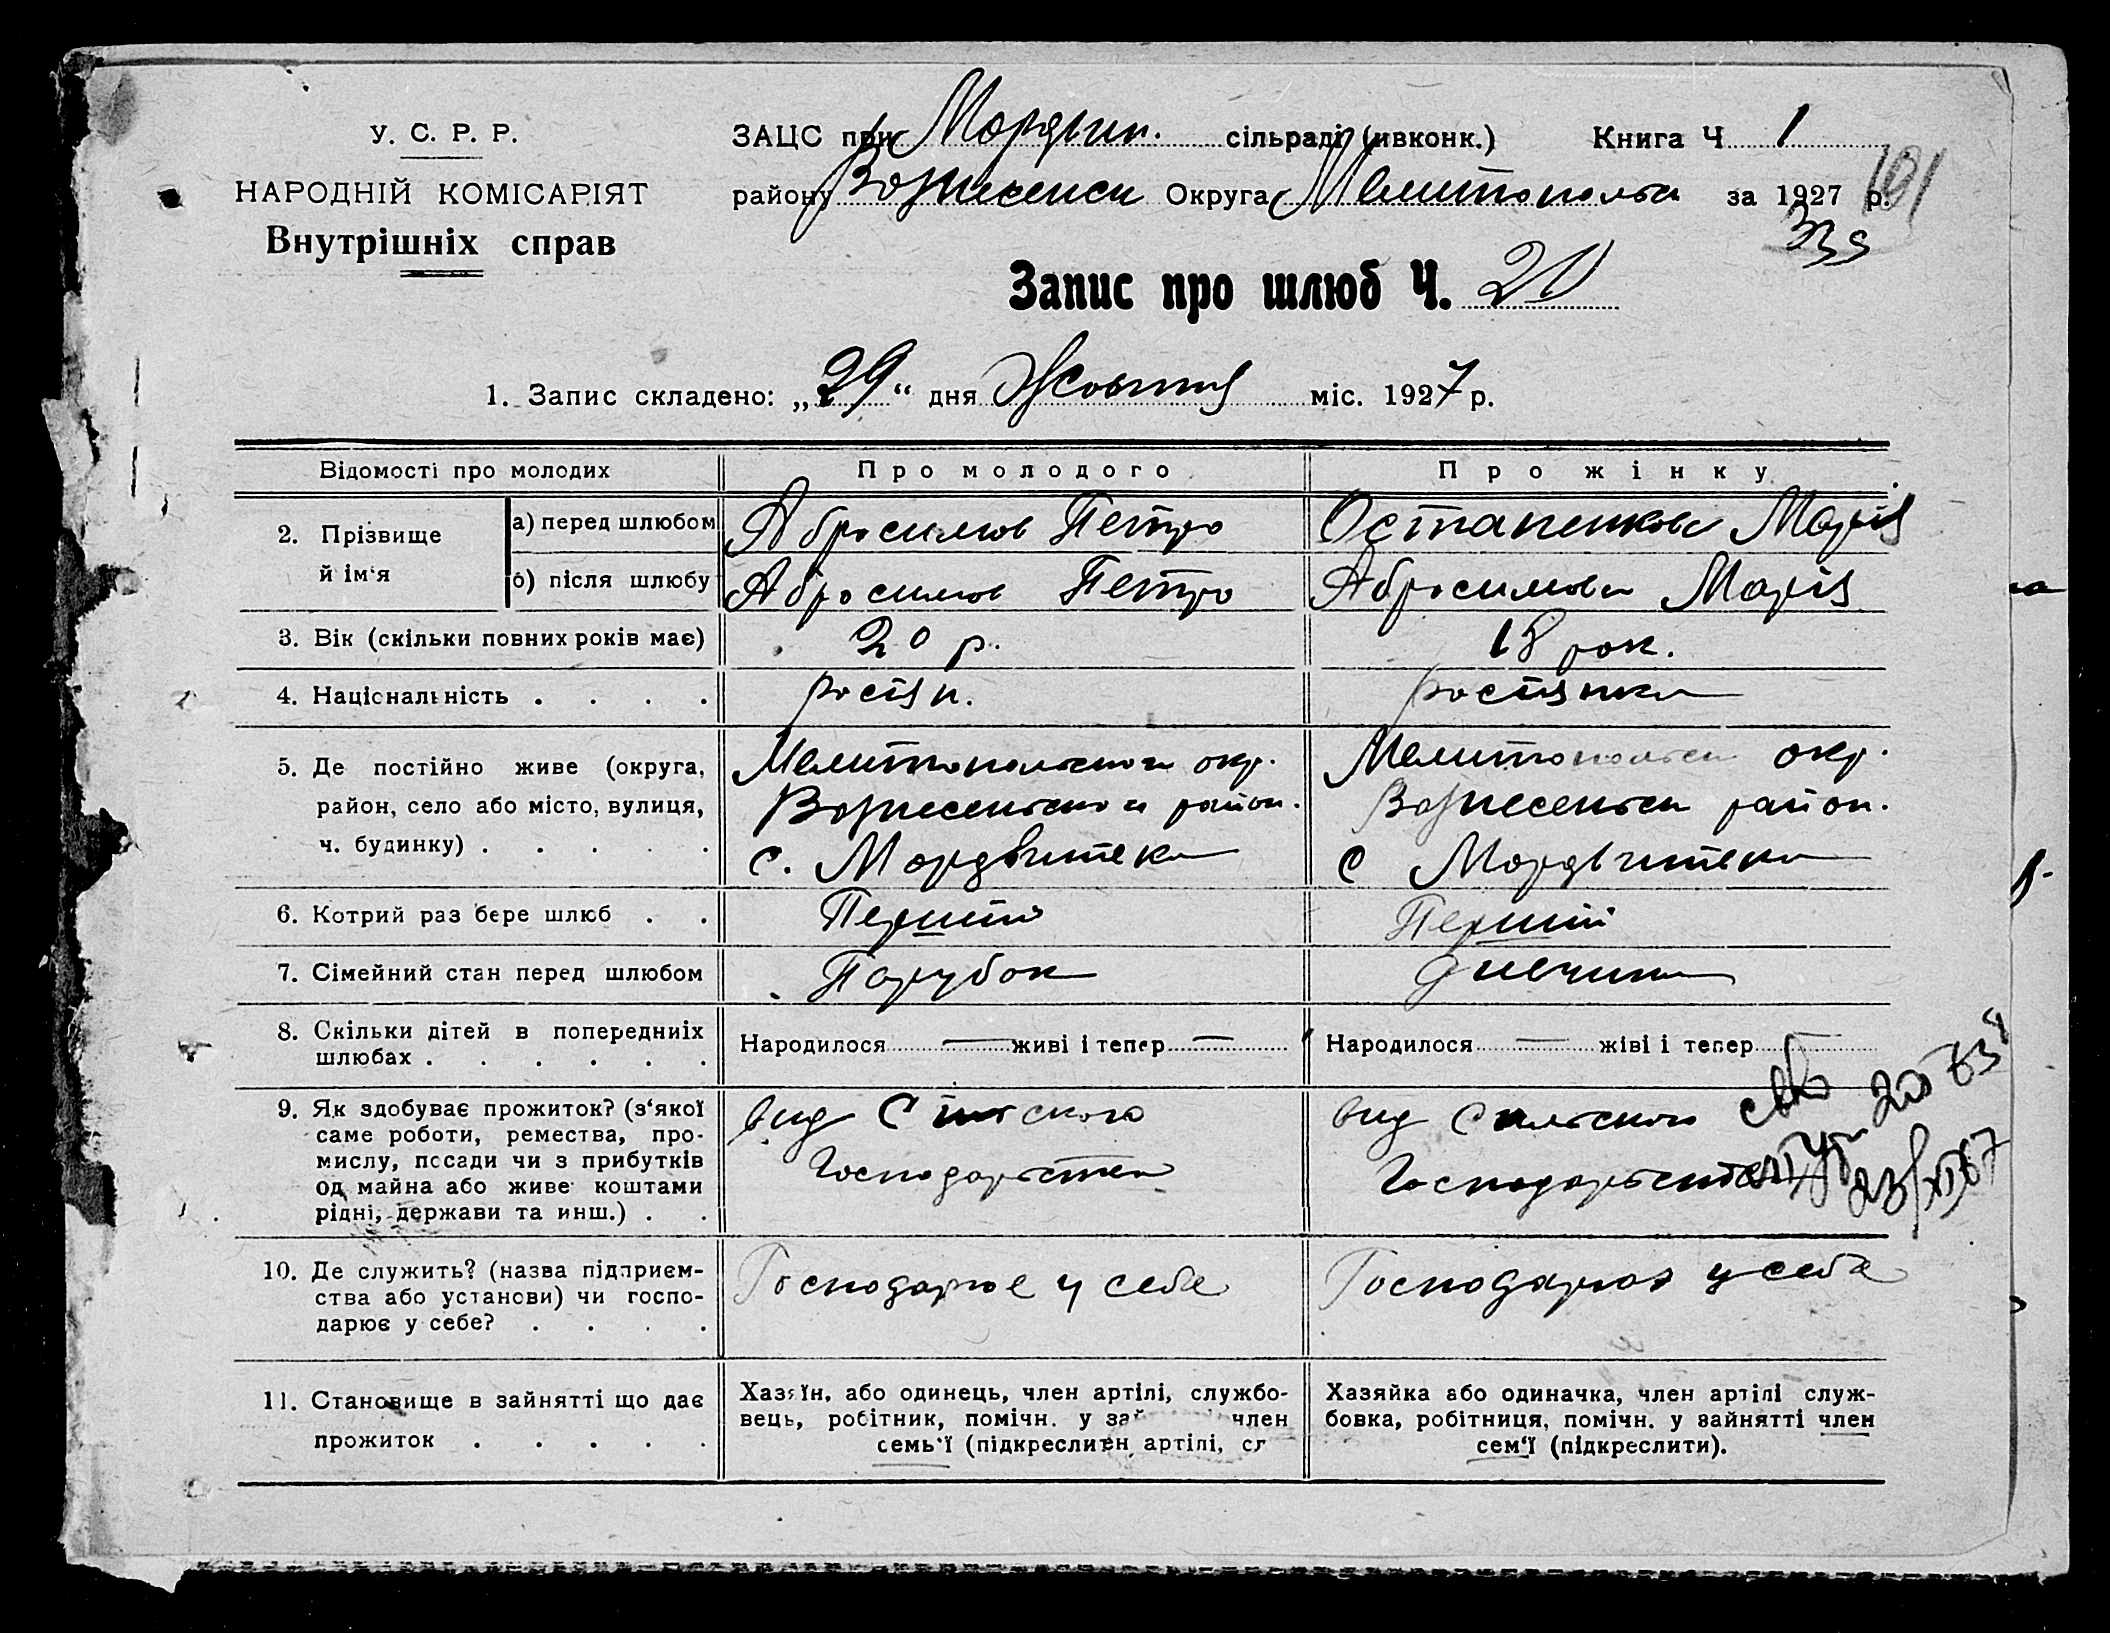 У. С. Р. Р.
НАРОДНІЙ КОМІСАРІЯТ
Внутрішніх справ
ЗАЦС при Мордвин. сільраді (ивконк.) Книга Ч 1
району Вознесенск Округа Мелитопольск за 1927 р. 101
335
Запис про шлюб Ч. 20
1. Запис складено: „29“ дня Жовтня міс. 1927 р.
Відомості про молодих Про молодого Про жінку
2. Прізвище й ім‘я
а) перед шлюбом Абросимов Петро Остапенкова Марія
б) після шлюбу Абросимов Петро Абросимова Марія
3. Вік (скільки повних років має) 20 р. 18 рок.
4. Національність . . . . росіян. росіянка
5. Де постійно живе (округа, Мелитопольского окр. Мелитопольск окр.
район, село або місто, вулиця, Вознесенского район. Вознесенськ район.
ч. будинку) . . . . . с. Мордвитека с Мордвитека
6. Котрий раз бере шлюб . . Перший Перший
7. Сімейний стан перед шлюбом Парубок дивчина
8. Скільки дітей в попередниіх Народилося — живі і тепер — Народилося — жіві і тепер
шлюбах . . . . . .
9. Як здобуває прожиток? (з‘якої вид Сільского вид Сильского
саме роботи, ремества, про- Господарьства Господарьства
мислу, посади чи з прибутків
од майна або живе коштами
рідні, держави та инш.) . .
23/XI 67
10. Де служить? (назва підприєм- Господарює у себе Господарює у себе
ства або установи) чи госпо-
дарює у себе? . . . .
11. Становище в зайнятті що дає
прожиток . . . . .
Хазяїн, або одинець, член артілі, службо-
вець, робітник, помічн. у член
семь‘ї (підкреслити артілі,
Хазяйка або одиначка, член артілі служ-
бовка, робітниця, помічн. у зайнятті член
сем‘ї (підкреслити).